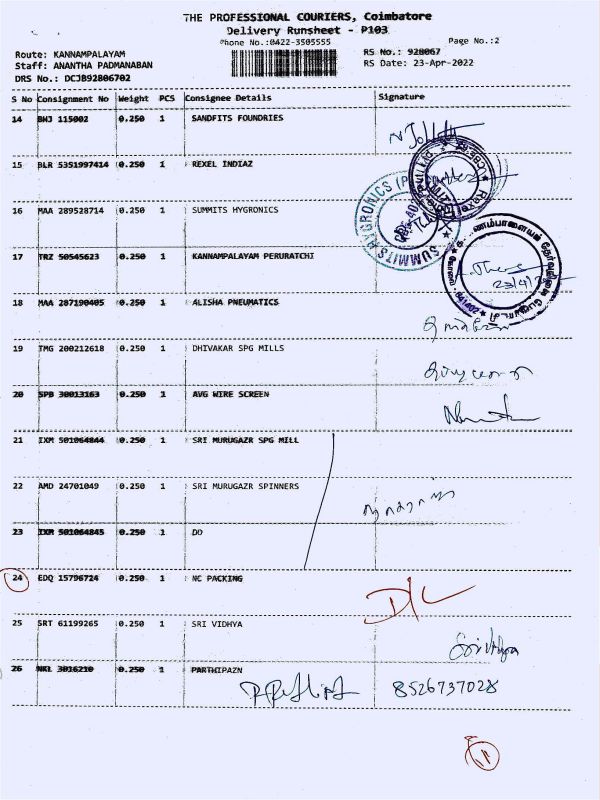 THE PROFESSIONAL COURIERS, Coimbatore
Delivery Runsheet - P103
Phone No.:0422-3505555
Page No.:2
Route: KANNAMPALAYAM
RS No.: 928067
Staff: ANANTHA PADMANABAN
RS Date: 23-Apr-2022
DRS No.: DCJB92806702
S No Consignment No Weight PCS Consignee Details Signature
14 BNJ 115002 0.250 1 SANDFITS FOUNDRIES
15 BLR 5351997414 0.250 1 REXEL INDIAZ
16 MAA 289528714 0.250 1 SUMMITS HYGRONICS
SUMMITS HYGRONICS
17 TRZ 50545623 0.250 1 KANNAMPALAYAM PERURATCHI
641402
18 MAA 287190405 0.250 1 ALISHA PNEUMATICS
19 TMG 200212618 0.250 1 DHIVAKAR SPG MILLS
20 SPB 30013163 0.250 1 AVG WIRE SCREEN
21 IXM 501064844 0.250 1 SRI MURUGAZR SPG MILL
22 AMD 24701049 0.250 1 SRI MURUGAZR SPINNERS
23 IXM 501064845 0.250 1 DO
24 EDQ 15796724 0.250 1 NC PACKING
D/L
25 SRT 61199265 0.250 1 SRI VIDHYA
Srividhya
26 NKL 3016210 0.250 1 PARTHIPAZN
8526737028